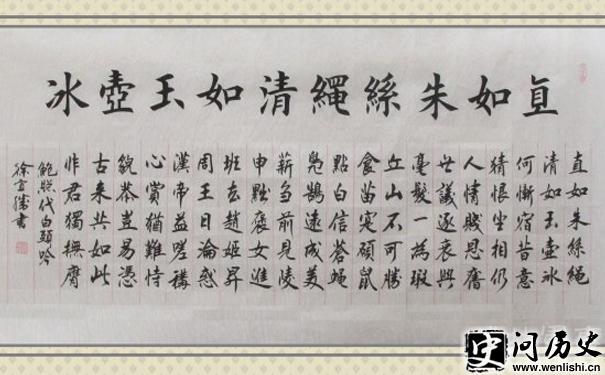 直如朱絲繩清如玉壺冰
直如朱絲繩
清如玉壺冰
何慚宿昔意
猜恨坐相仍
人情賤恩舊
世議逐衰興
毫髮一為瑕
丘山不可勝
食苗實碩鼠
點白信蒼蠅
鳧鵠遠成美
薪刍前見陵
申黜褒女進
班去趙姬昇
周王日淪惑
漢帝益嗟稱
心賞猶難恃
貌恭豈易憑
古來共如此
非君獨撫膺
鮑照代白頭吟
徐書
史 问历史
www.wenlishi.cn